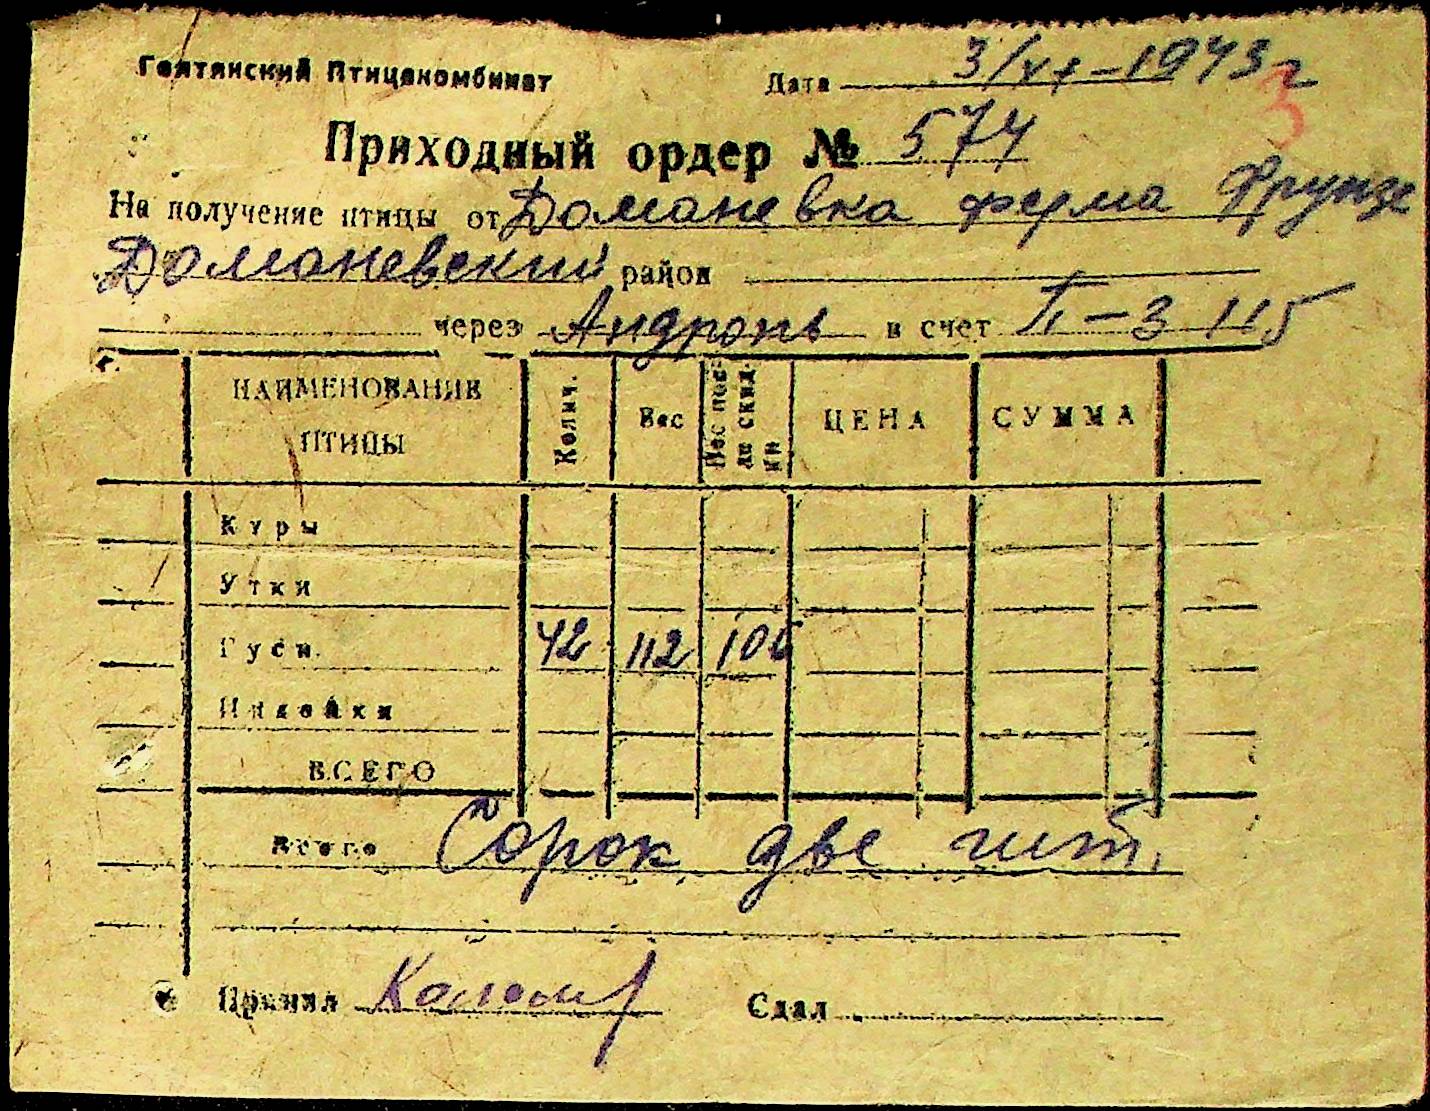 Голтянский Птицекомбинат Дата 3/XI-1943 г
3
Приходный ордер № 574
На получение птицы от Доманевка ферма Фрунзе
Доманевский район
через Андронь в счет II-3 115
НАИМЕНОВАНИЕ ПТИЦЫ Колич. Вес Вес после скидки ЦЕНА СУММА
Куры
Утки
Гуси 42 112 105
Индейки
ВСЕГО
Всего Сорок две шт.
Принял Сдал